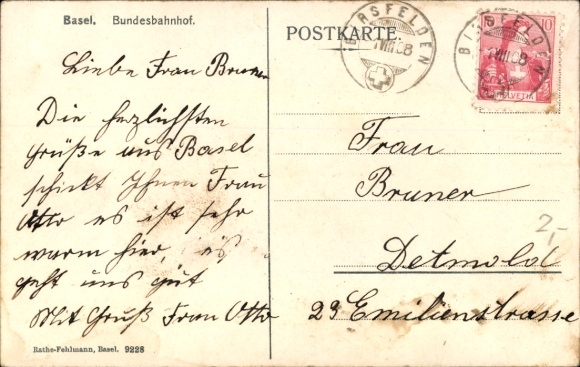 Basel. Bundesbahnhof.
Liebe Frau Bruner
Die herzlichsten
Grüße aus Basel
schickt Ihnen Frau
Otto es ist sehr
warm hier, es
geht uns gut
Mit Gruß Frau Otto
Rathe-Fehlmann, Basel. 9228
POSTKARTE.
BIRSFELDEN
VIII 08
BIRSFELDEN
VIII 08
10
HELVETIA
Frau
Bruner
Detmold
23 Emilienstrasse
2,-